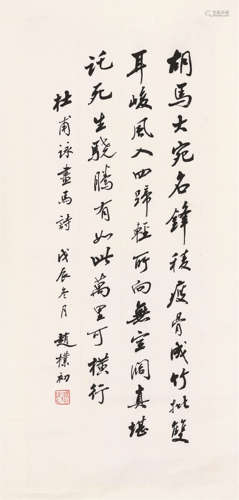 胡馬大宛名鋒稜瘦骨成竹批雙
耳峻風入四蹄輕所向無空闊真堪
託死生驍騰有如此萬里可橫行
杜甫詠畫馬詩 戊辰冬月 趙樸初